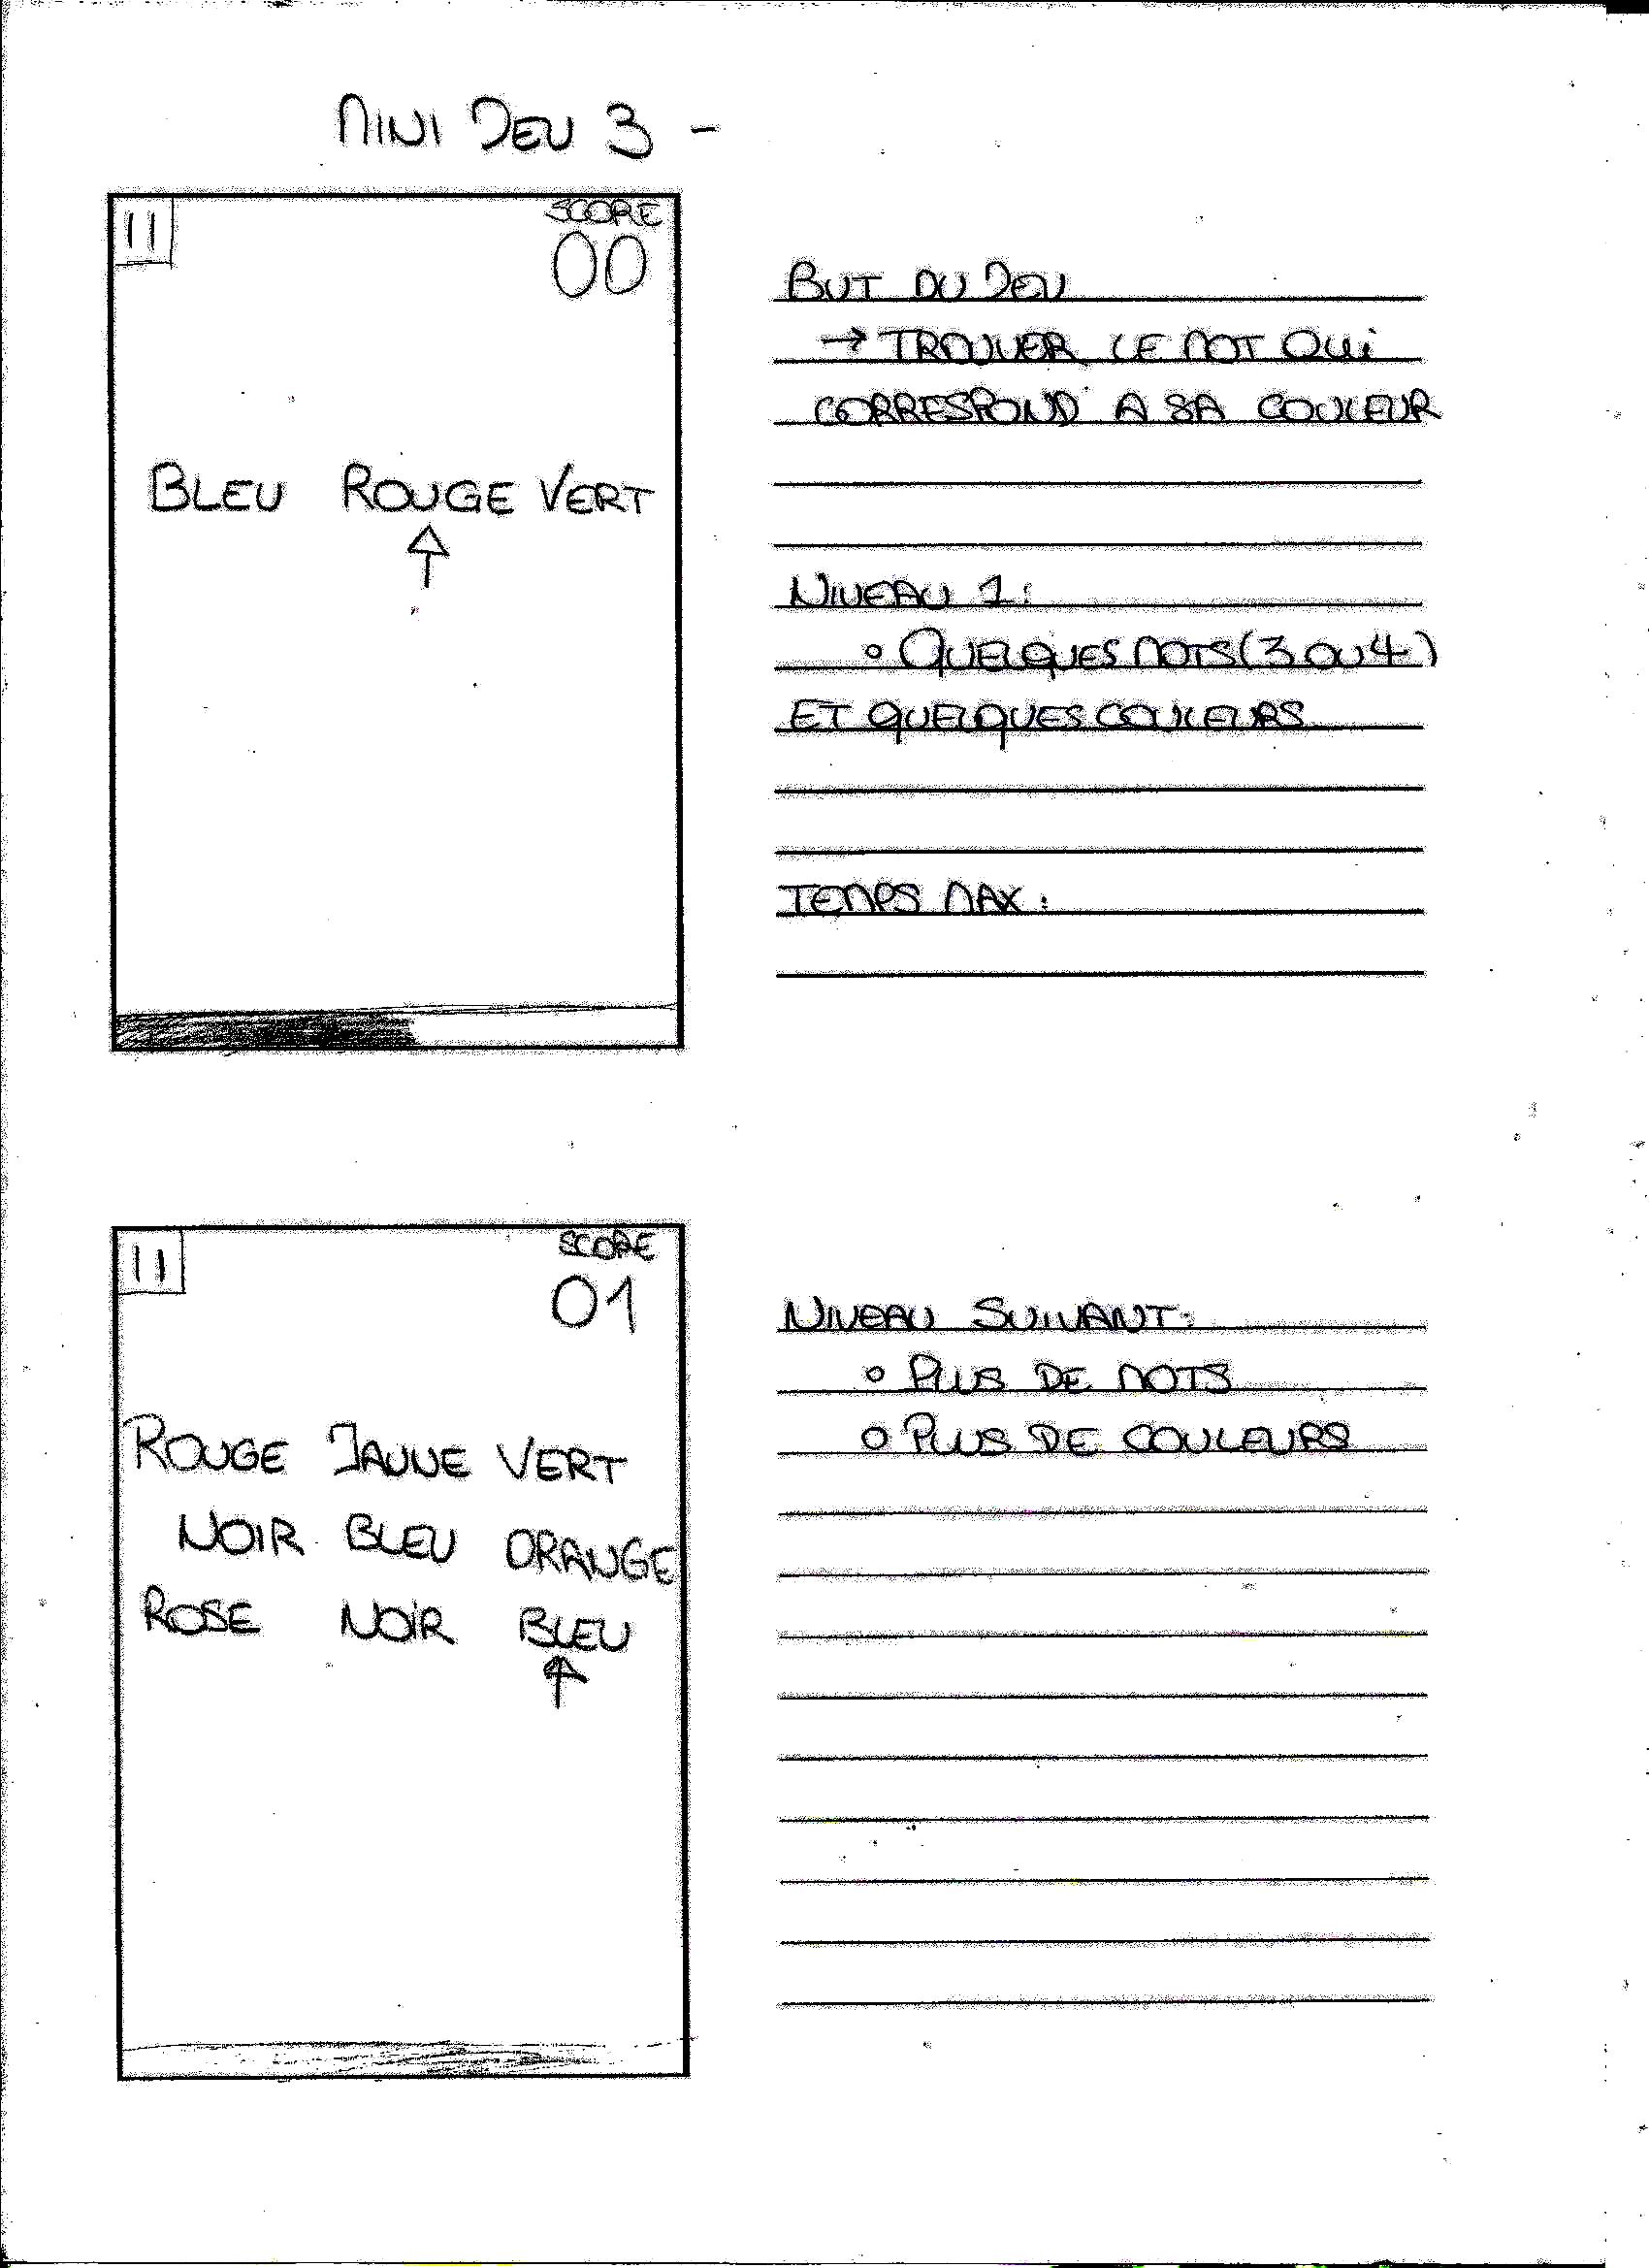 MINI JEU 3 -
SCORE
00
BLEU ROUGE VERT
BUT DU JEU
→ TROUVER LE MOT QUI
CORRESPOND A SA COULEUR
NIVEAU 1:
° QUELQUES MOTS (3 OU 4)
ET QUELQUES COULEURS
TEMPS MAX :
SCORE
01
ROUGE JAUNE VERT
NOIR BLEU ORANGE
ROSE NOIR BLEU
NIVEAU SUIVANT:
° PLUS DE MOTS
° PLUS DE COULEURS